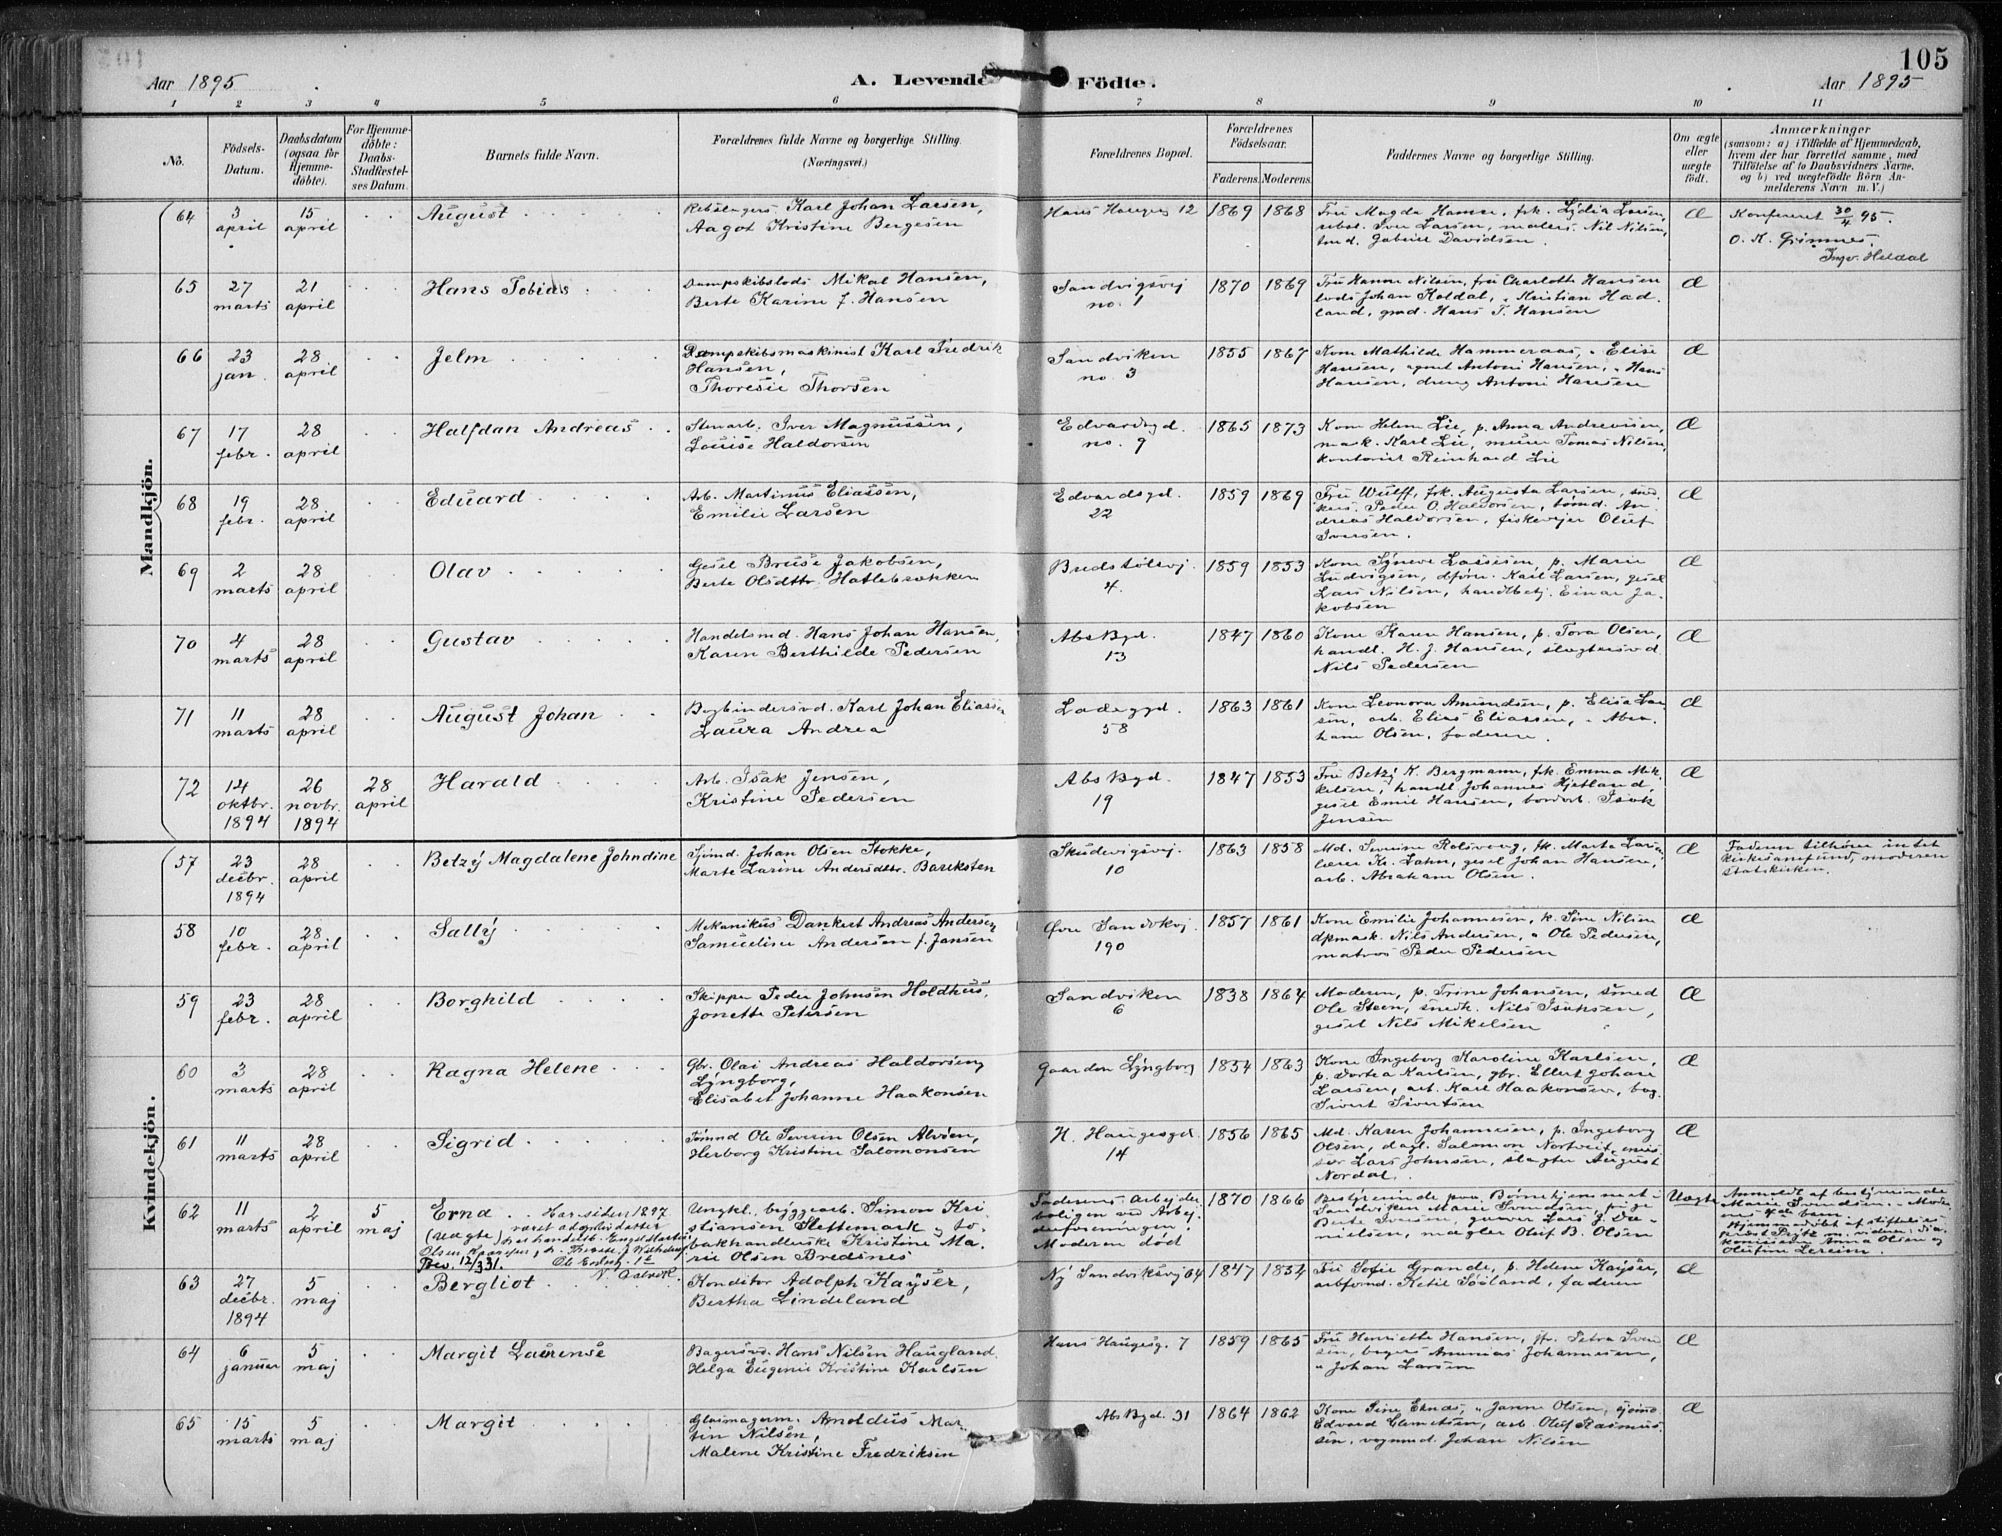 105
Aar 1895
A. Levende Födte.
Aar 1895
1 2 3 4 5 6 7 8 9 10 11
No.
Födsels-Datum.
Daabsdatum (ogsaa for Hjemme-döbte).
For Hjemme-döbte: Daabs-Stadfæstel-ses Datum.
Barnets fulde Navn.
Forældrenes fulde Navne og borgerlige Stilling. (Næringsvei.)
Forældrenes Bopæl.
Forældrenes Födselsaar.
Faderens. Moderens.
Faddernes Navne og borgerlige Stilling.
Om ægte eller uægte födt.
Anmærkninger
(saasom: a) i Tilfælde af Hjemmedaab,
hvem der har forrettet samme, med
Tilföielse af to Daabsvidners Navne,
og b) ved uægtefödte Börn An-
melderens Navn m. V.)
Mandkjön.
64 3 april 15 april August
Karl Johan Larsen,
Aagot Kristine Bergesen
Hans Hauges 12 1869 1868
Fru Magda Hamre, frk. Lydia Larsen,
Iver Larsen, Nil Nilsen,
Gabriel Davidsen.
Æ
Konfereret 30/4 95.
O. K. Grimnes.
Ingv. Heldal
65 27 marts 21 april Hans Tobias
Dampskibslods Mikal Hansen,
Berte Karine f. Hansen
Sandvigsvej no. 1 1870 1869
Fru Hanne Nilsen, fru Charlotte Hansen
lods Johan Koldal, " Kristian Had-
land, Hans T. Hansen
Æ
66 23 jan. 28 april Jelm
Dampskibsmaskinist Karl Fredrik
Hansen,
Thoresie Thorsen
Sandviken no. 3 1855 1867
Kone Mathilde Hammeraas, " Elise
Hansen, agent Antoni Hansen, " Hans
Hansen, dreng Antoni Hansen
Æ
67 17 febr. 28 april Halfdan Andreas
Stenarb. Iver Magnussen,
Louise Haldorsen
Edvardsgd. no. 9 1865 1873
Kone Helene Lie, p. Anna Andreassen,
mask. Karl Lie, murer Tomas Nilsen,
kontorist Reinhard Lie
Æ
68 19 febr. 28 april Eduard
Arb. Martinus Eliassen,
Emilie Larsen
Edvardsgd. 22 1859 1869
Fru Wulff, frk. Augusta Larsen, sned-
kers. Peder O. Haldorsen, tømd. An-
dreas Haldorsen, fiskevejer Oluf
Iversen.
Æ
69 2 marts 28 april Olav
Gesel Bruse Jakobsen,
Berte Olsdttr. Hatlebrækken
Bredstølsvj. 4. 1859 1853
Kone Synneve Lassesen, p. Marie
Ludvigsen, dføre. Karl Larsen, gesel
Lars Nilsen, handlbetj. Einar Ja-
kobsen
Æ
70 4 marts 28 april Gustav
Handelsmd. Hans Johan Hansen,
Karen Berthilde Pedersen
Abs Bgd. 13 1847 1860
Kone Karen Hansen, p. Tora Olsen,
handl. H. J. Hansen, slagtersvd
Nils Pedersen
Æ
71 11 marts 28 april August Johan
Bogbindersvd. Karl Johan Eliassen
Laura Andrea
Ladegгd. 58 1863 1861
Kone Leonora Amundsen, p. Elisa Lar-
sen, arb. Elias Eliassen, " Abra-
ham Olsen, faderen.
Æ
72 14 oktbr. 1894 26 novbr. 1894 28 april Harald
Arb. Isak Jensen,
Kristine Pedersen
Abs Bgd. 19 1847 1853
Fru Betzy K. Bergmann, frk. Emma Mik-
kelsen, handl Johannes Hjetland,
gesel Emil Hansen, Isak
Jensen
Æ
Kvindekjön.
57 23 decbr. 1894 28 april Betzy Magdalene Johndine
Sjømd. Johan Olsen Stokke,
Marte Larine Andersdttr. Bareksten
Skudevigsvej. 10 1863 1858
Md. Severine Rolsvaag, fk. Marta Lar
lærer Kr. Lahn, gesel Johan Hansen,
arb. Abraham Olsen.
Æ
Faderen tilhører intet
kirkesamfund, moderen
statskirken.
58 10 febr. 28 april Sally
Mekanikus Dankert Andreas Andersen
Samueline Andersen f. Jansen
Øvre Sandvkvj. 190 1857 1861
Kone Emilie Johannesen, k. Sine Nilsen
dpmask. Nils Andersen, " Ole Pedersen,
matros Peder Pedersen
Æ
59 23 febr. 28 april Borghild
Skipper Peder Johnsen Holdhus,
Jonette Petersen
Sandviken 6 1838 1864
Moderen, p. Trine Johansen, smed
Ole Steen, snedk. Nils Isaksen,
gesel Nils Mikelsen
Æ
60 3 marts 28 april Ragna Helene
Gbr. Olai Andreas Haldorsen
Lyngborg,
Elisabet Johanne Haakonsen
Gaarden Lyngborg 1854 1863
Kone Ingeborg Karoline Karlsen,
p. Dortea Karlsen, gbr. Ellert Johan
Larsen, art. Karl Haakonsen, bag.
Sivert Sivertsen
Æ
61 11 marts 28 april Sigrid
Tømmd Ole Severin Olsen Alvøen,
Herborg Kristine Salomonsen
H. Haugesgd. 14 1856 1865
Md. Karen Johannesen, p. Ingeborg
Olsen, dagl. Salomon Nortveit, emis-
sær Lars Johnsen, slagter August
Nordal.
Æ
62 11 marts 2 april 5 maj Erna (uægte)
Har siden 1897
været adoptivdatter
Bev. 12/3 31.
Ungkl., byggearb. Simon Kri-
stiansen Slettemark og to-
bakhandlerske Kristine Ma-
rie Olsen Bredsnes
Faderens: Arbejder-
boligen ved Arbej-
derforeningen.
Moderen død
1870 1866
Bestyrerinde paa Børnehjemmet i
Sandviken Marie Svendsen, pige
Berte Iversen, graver Lars J. Da-
nielsen, mægler Oluf B. Olsen
Uægte
Anmeldt af bestyrerinde
Marie Svendsen. Mode-
rens 4de barn.
Hjemmedøbt af stiftelses-
præst
Anna Olsen og
Olufine Lereim.
63 27 decbr. 1894 5 maj Bergliot
Konditor Adolph Kayser,
Bertha Lindeland
Ny Sandviksvj 64 1847 1854
Fru Sofie Grande, p. Helene Kayser,
arbformd. Ketil Søiland, faderen
Æ
64 6 januar 5 maj Margit Laurense
Bagersvd. Hans Nilsen Haugland.
Helga Eugenie Kristine Karlsen
Hans Haugesg. 7 1859 1865
Fru Henriette Hansen, fr. Petra Sven
sen, bager Ananias Johannesen,
" Johan Larsen
Æ
65 15 marts 5 maj Margit
Glasmagerm. Arnoldus Mar-
tin Nilsen,
Malene Kristine Fredriksen
Abs Bgd. 31 1864 1862
Kone Sine Eknes, " Janne Olsen,
Edvard Clemetsen, arb. Oluf Rasmus-
sen, vognmd. Johan Nilsen
Æ